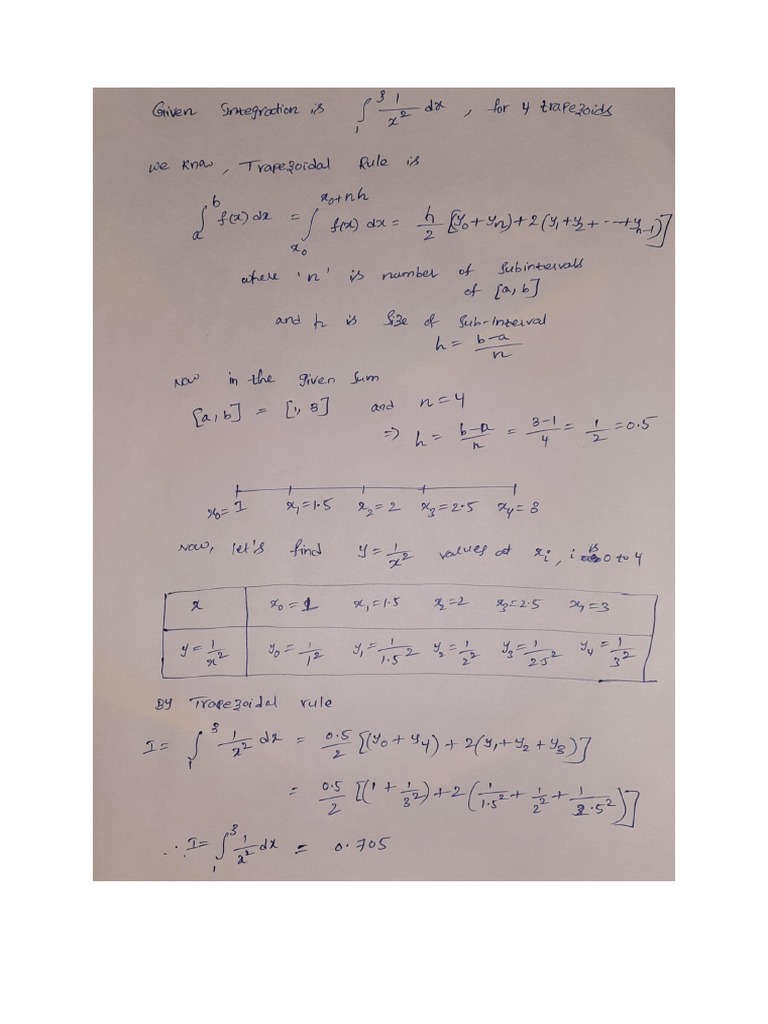 Given Integration is ∫₁³ 1/x² dx , for 4 trapezoids
we know, Trapezoidal Rule is
∫ₐᵇ f(x) dx = ∫_{x₀}^{x₀+nh} f(x) dx = h/2 [(y₀+yₙ)+2(y₁+y₂+---+y_{n-1})]
where 'n' is number of subintervals
of [a, b]
and h is size of sub-interval
h = b-a/n
Now in the given sum
[a, b] = [1, 3] and n=4
⇒ h = b-a/n = 3-1/4 = 1/2 = 0.5
x₀=1 x₁=1.5 x₂=2 x₃=2.5 x₄=3
Now, let's find y = 1/x² values at xᵢ, i is 0 to 4
x x₀=1 x₁=1.5 x₂=2 x₃=2.5 x₄=3
y=1/x² y₀=1/1² y₁=1/1.5² y₂=1/2² y₃=1/2.5² y₄=1/3²
By Trapezoidal rule
I= ∫₁³ 1/x² dx = 0.5/2 [(y₀+y₄)+2(y₁+y₂+y₃)]
= 0.5/2 [(1+1/3²)+2(1/1.5²+1/2²+1/2.5²)]
∴ I= ∫₁³ 1/x² dx = 0.705